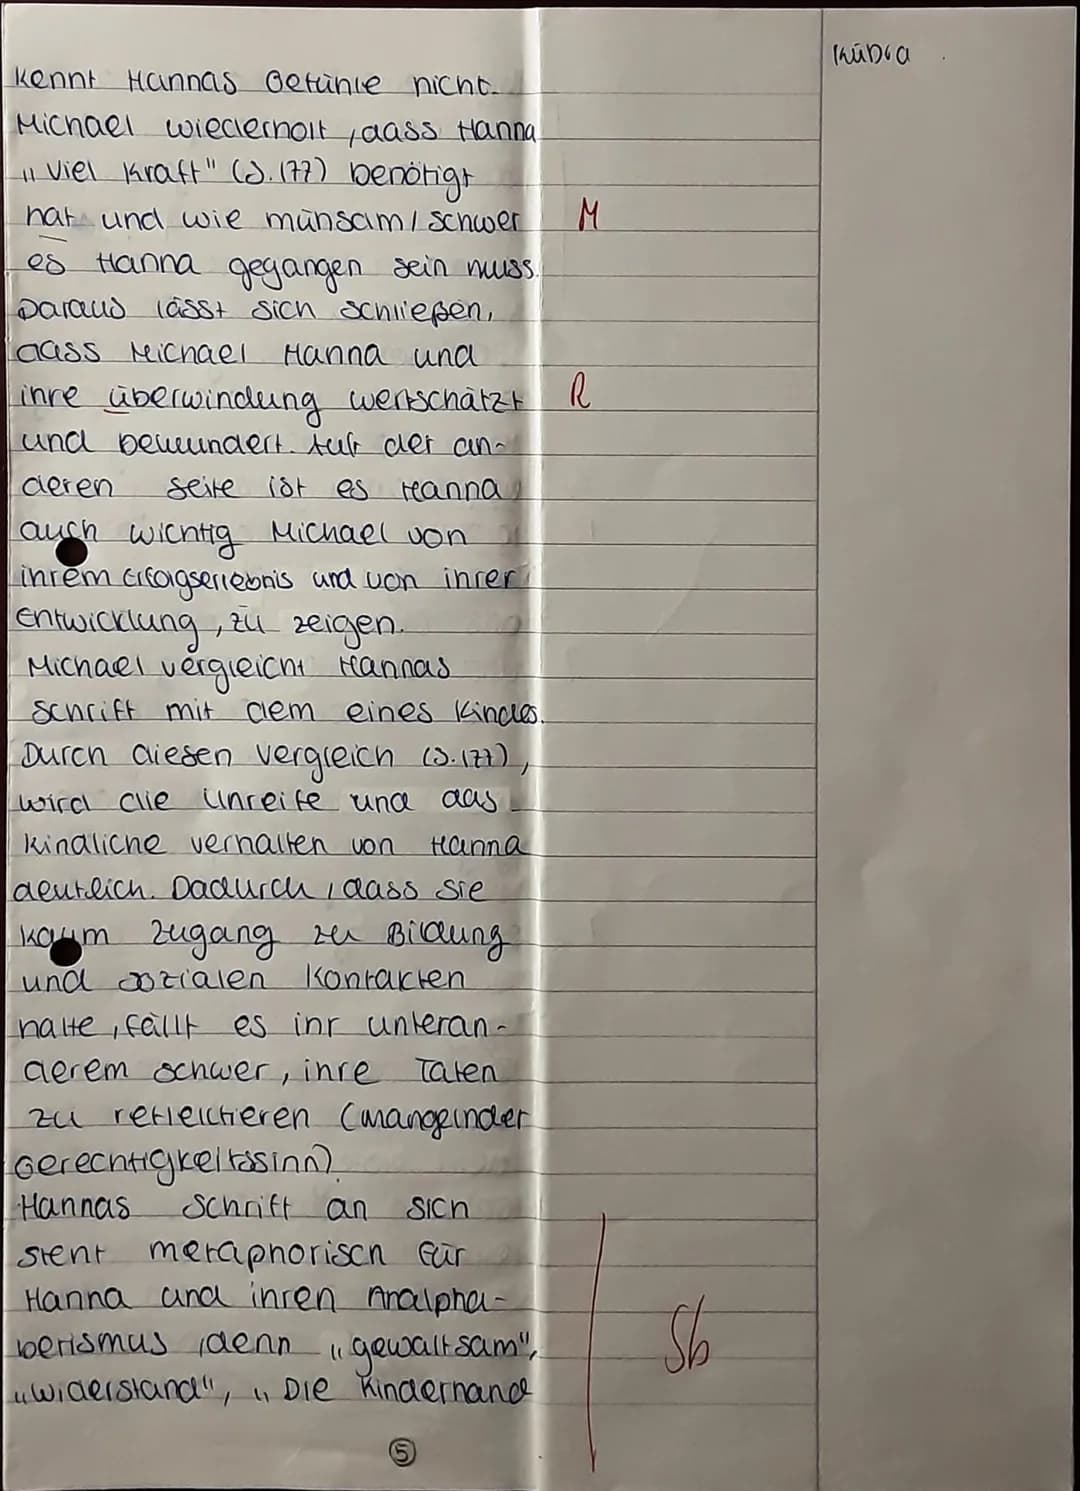 Kübra
kennt Hannas Gefühle nicht.
Michael wiederholt, dass Hanna
„viel Kraft" (S. 177) benötigt
hat und wie mühsam / schwer
M
es Hanna gegangen sein muss.
Daraus lässt sich schließen,
dass Michael Hanna und
ihre überwindung wertschätzt
R
und bewundert. Auf der an-
deren Seite ist es Hanna
auch wichtig Michael von
ihrem Erfolgserlebnis und von ihrer
Entwicklung, zu zeigen.
Michael vergleicht Hannas
Schrift mit dem eines Kindes.
Durch diesen Vergleich (S. 177),
wird die Unreife und das
kindliche verhalten von Hanna
deutlich. Dadurch, dass sie
kaum Zugang zu Bildung
und sozialen Kontakten
hatte, fällt es ihr unteran-
derem schwer, ihre Taten
zu reflektieren (mangelnder
Gerechtigkeitssinn)
Hannas Schrift an sich
steht metaphorisch für
Hanna und ihren Analpha-
betismus, denn „gewaltsam",
Sb
„Widerstand", „Die Kinderhand
5